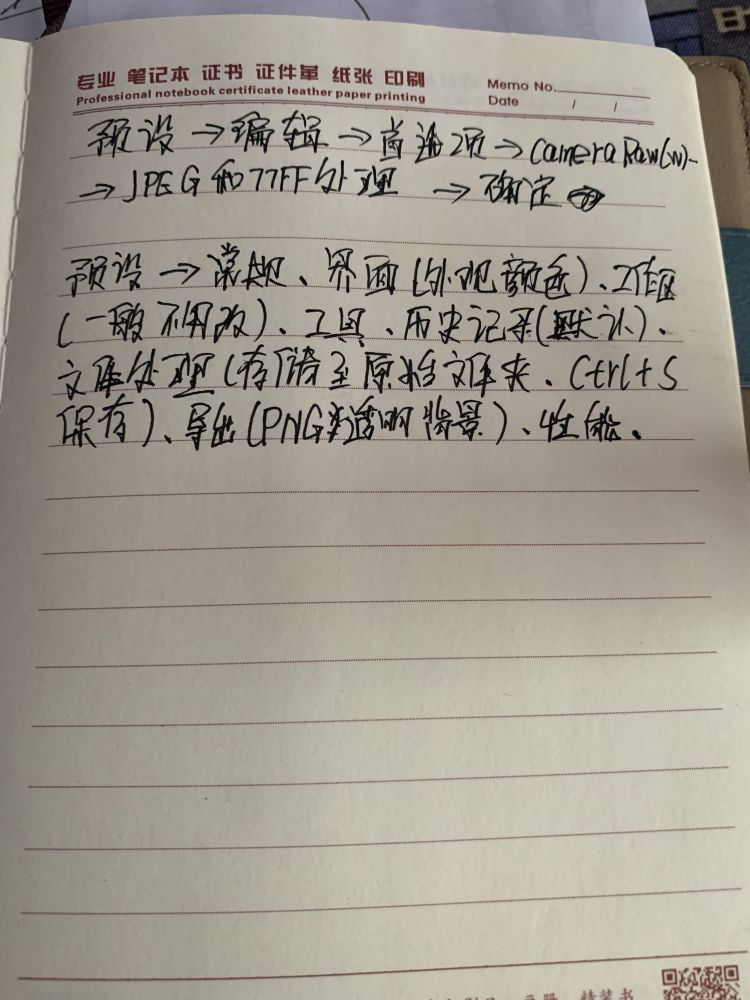 专业 笔记本 证书 证件革 纸张 印刷
Professional notebook certificate leather paper printing
Memo No.
Date / /
预设→编辑→首选项→Camera Raw(W)…
→JPEG和TIFF处理 →确定
预设→常规、界面(外观颜色)、工作区
(一般不用改)、工具、历史记录(默认)、
文件处理(存储至原始文件夹、Ctrl+S
保存)、导出(PNG类透明背景)、性能、
精装书